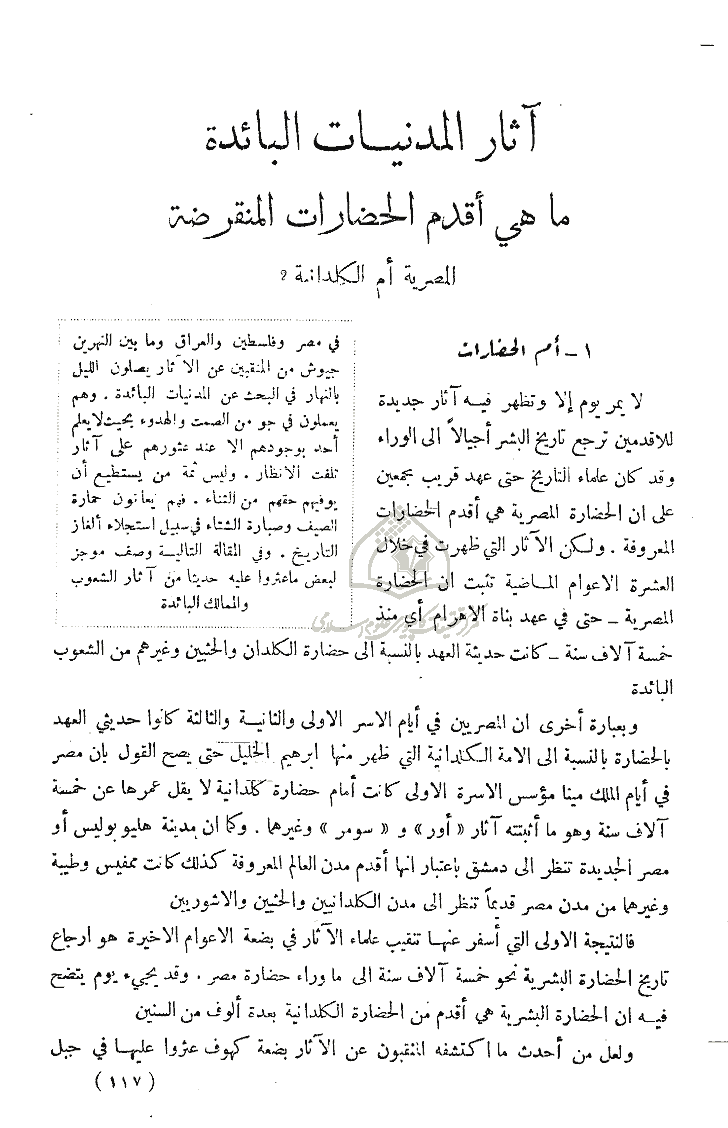 آثار المدنيات البائدة
ما هي أقدم الحضارات المنقرضة
المصرية أم الكلدانية ؟
١ – أم الحضارات
لا يمر يوم إلا وتظهر فيه آثار جديدة
للاقدمين ترجع تاريخ البشر أجيالاً الى الوراء
وقد كان علماء التاريخ حتى عهد قريب يجمعين
على ان الحضارة المصرية هي أقدم الحضارات
المعروفة . ولكن الآثار التي ظهرت في خلال
العشرة الاعوام الماضية تثبت ان الحضارة
المصرية – حتى في عهد بناة الاهرام أي منذ
خمسة آلاف سنة – كانت حديثة العهد بالنسبة الى حضارة الكلدان والحثيين وغيرهم من الشعوب
البائدة
في مصر وفلسطين والعراق وما بين النهرين
جيوش من المنقبين عن الآثار يصلون الليل
بالنهار في البحث عن المدنيات البائدة . وهم
يعملون في جو من الصمت والهدوء بحيث لا يعلم
أحد بوجودهم الا عند عثورهم على آثار
تلفت الانظار . وليس ثمة من يستطيع أن
يوفيهم حقهم من الثناء . فهم يعانون حمارة
الصيف وصبارة الشتاء في سبيل استجلاء ألغاز
التاريخ . وفي المقالة التالية وصف موجز
لبعض ما عثروا عليه حديثا من آثار الشعوب
والممالك البائدة
وبعبارة أخرى ان المصريين في أيام الاسر الاولى والثانية والثالثة كانوا حديثي العهد
بالحضارة بالنسبة الى الامة الكلدانية التي ظهر منها ابرهيم الخليل حتى يصح القول بان مصر
في أيام الملك مينا مؤسس الاسرة الاولى كانت أمام حضارة كلدانية لا يقل عمرها عن خمسة
آلاف سنة وهو ما أثبتته آثار « أور » و « سومر » وغيرها . وكما ان مدينة هليوبوليس أو
مصر الجديدة تنظر الى دمشق باعتبار انها أقدم مدن العالم المعروفة كذلك كانت ممفيس وطيبة
وغيرهما من مدن مصر قديماً تنظر الى مدن الكلدانيين والحثيين والاشوريين
فالنتيجة الاولى التي أسفر عنها تنقيب علماء الآثار في بضعة الاعوام الاخيرة هو ارجاع
تاريخ الحضارة البشرية نحو خمسة آلاف سنة الى ما وراء حضارة مصر . وقد يجيء يوم يتضح
فيه ان الحضارة البشرية هي أقدم من الحضارة الكلدانية بعدة ألوف من السنين
ولعل من أحدث ما اكتشفه المنقبون عن الآثار بضعة كهوف عثروا عليها في جبل
( ١١٧ )